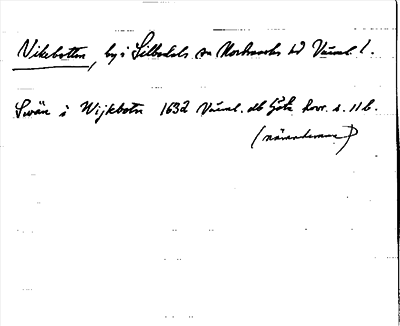 Vikebotten, by i Silbodals sn Nordmarks hd Värml l.
Swän i Wijkbotn 1632 Värml. db Göta hovr. s. 11 b.
(närvarande)